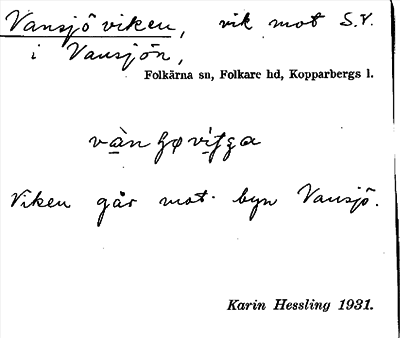 Vansjöviken, vik mot S.V.
i Vansjön,
Folkärna sn, Folkare hd, Kopparbergs l.
Viken går mot byn Vansjö.
Karin Hessling 1931.